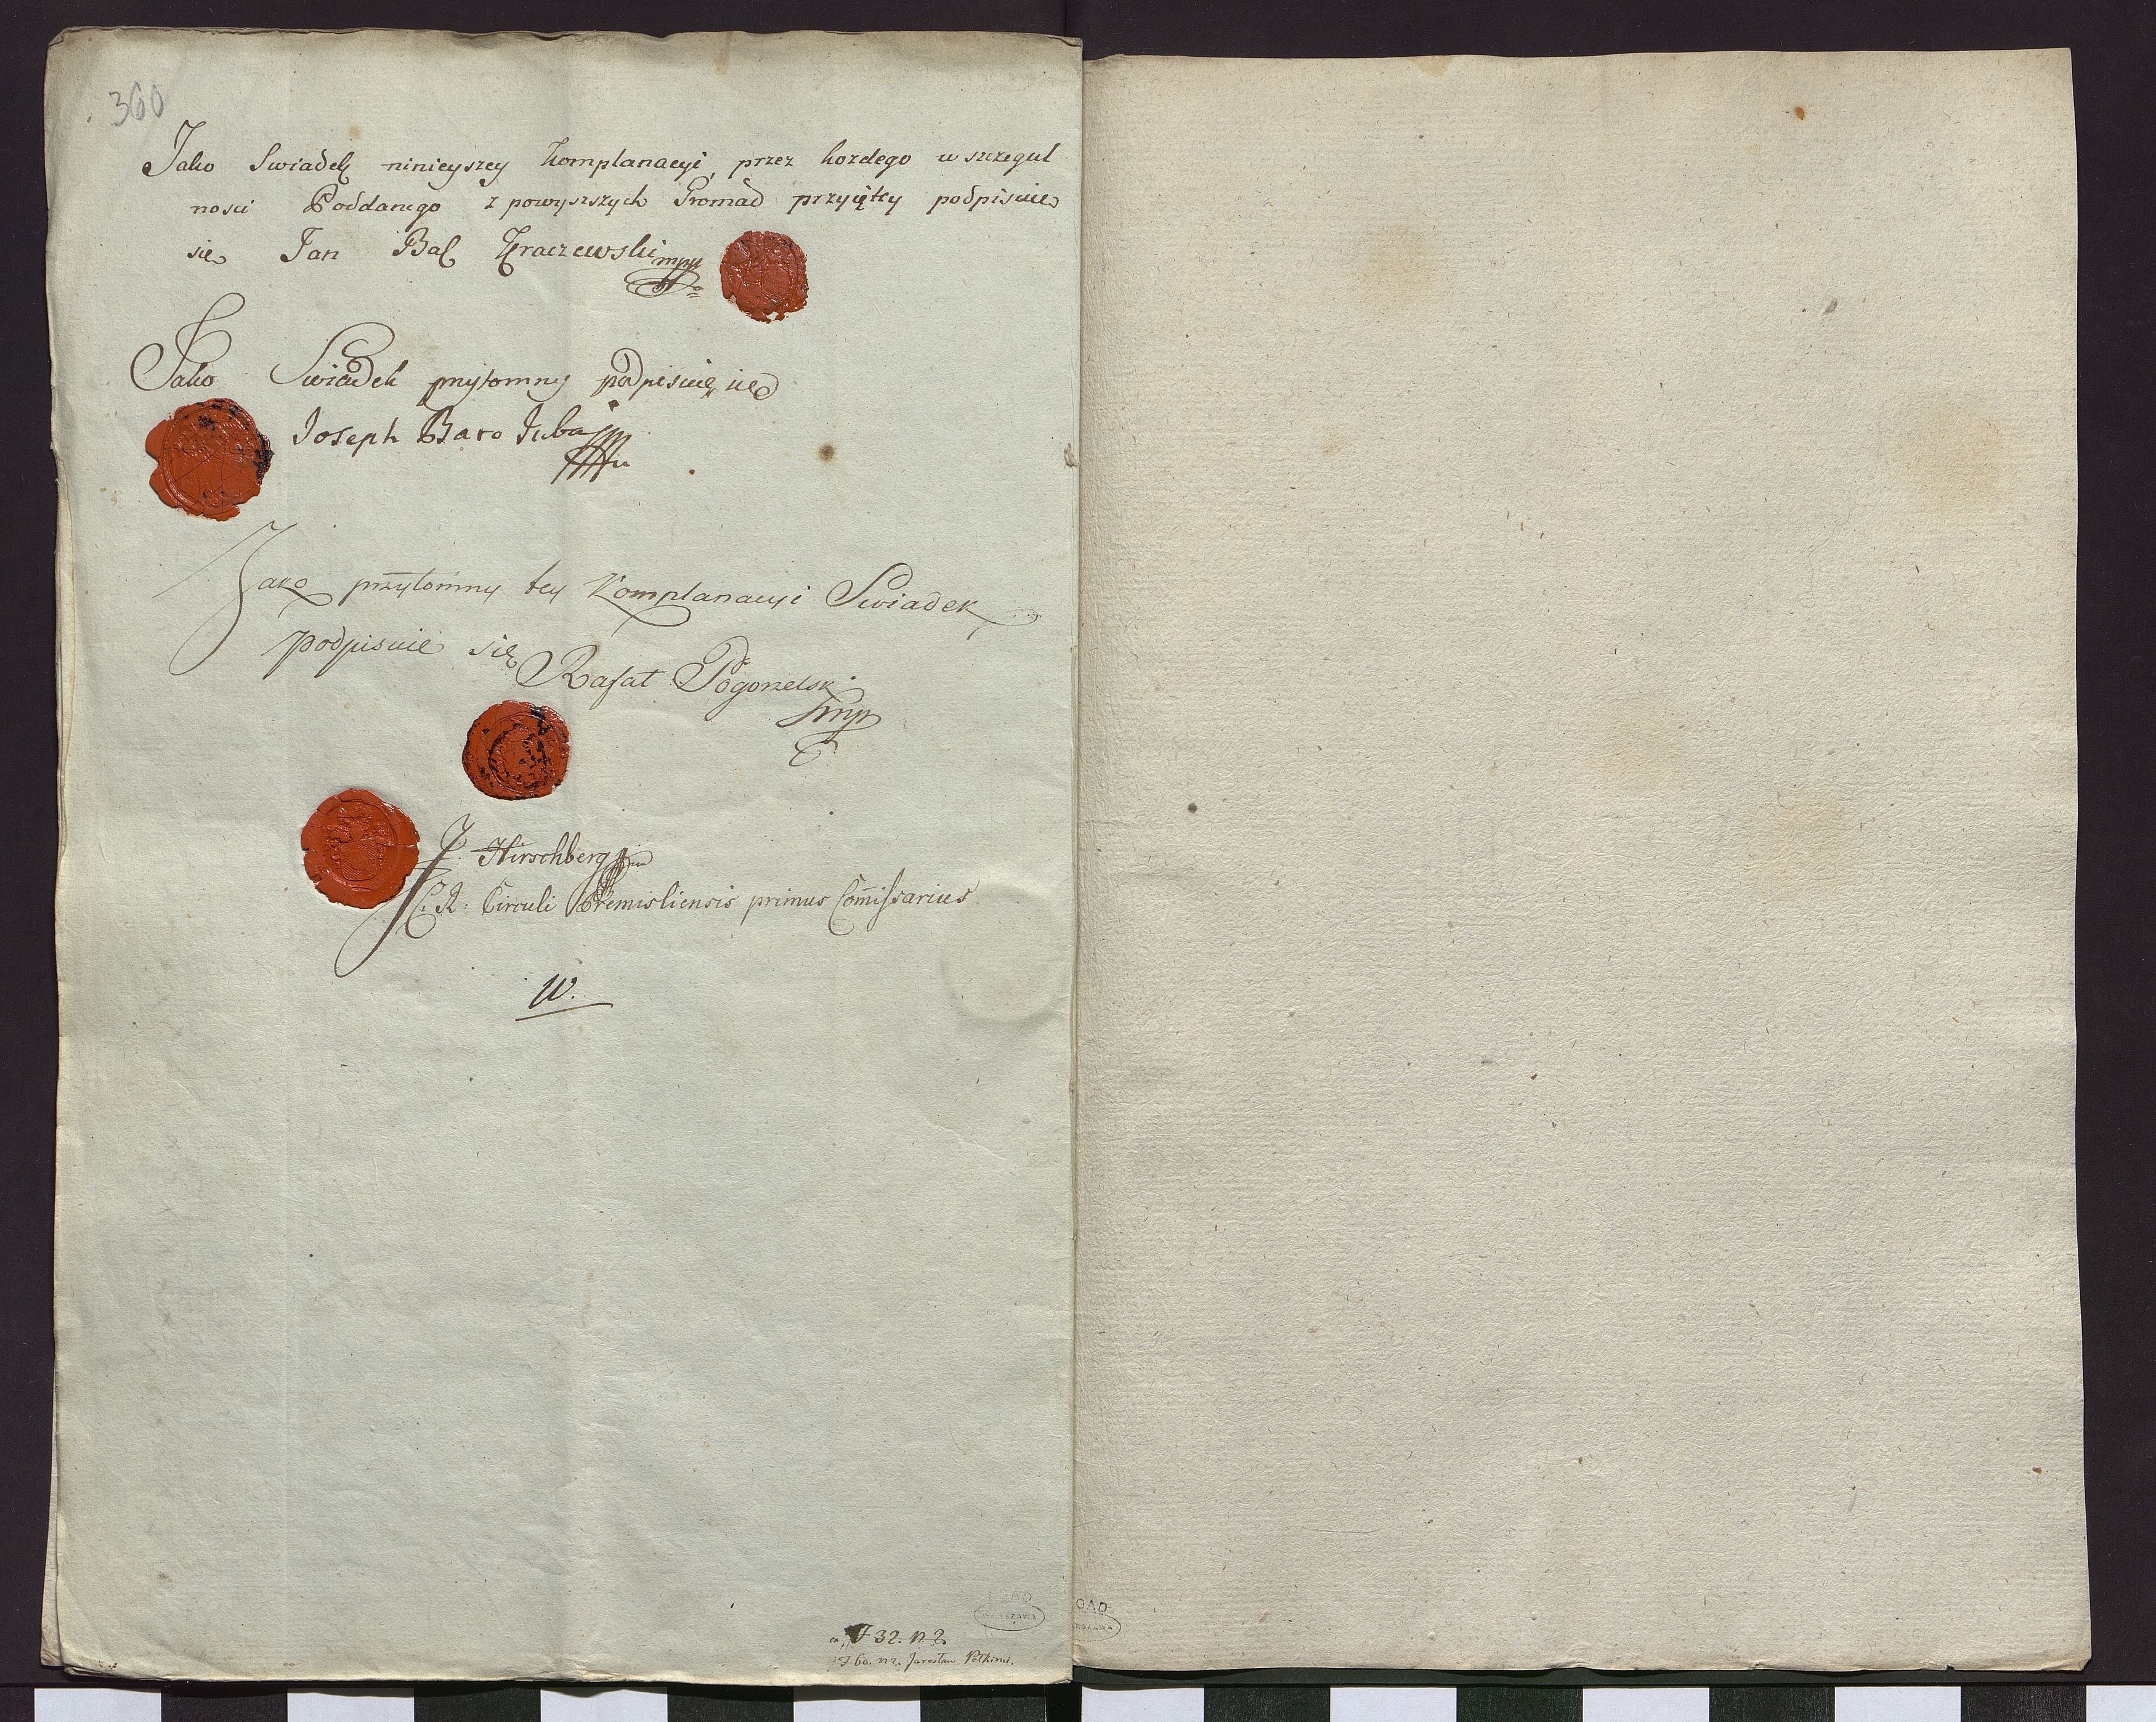 360
Jako Swiadek ninieyszey Komplanacyi, przez kozdego w szczegul
nosci Poddanego z powyszszych Gromad przyiętey podpisuie
się Jan Bal Kraczewski mpp
Jako Swiadek przytomny podpisuię się
Joseph Baro
Jako przytomny tey Komplanacyi Swiadek
podpisuie się Rafał Pogorzelski
mp
J: Hirschberg
C: R: Circuli Premisliensis primus Com̄issarius
W.
F 32. N 2.
F 60. n 2. Jarosław Pełkinie.
AGAD
WARSZAWA
GAD
RSZAWA